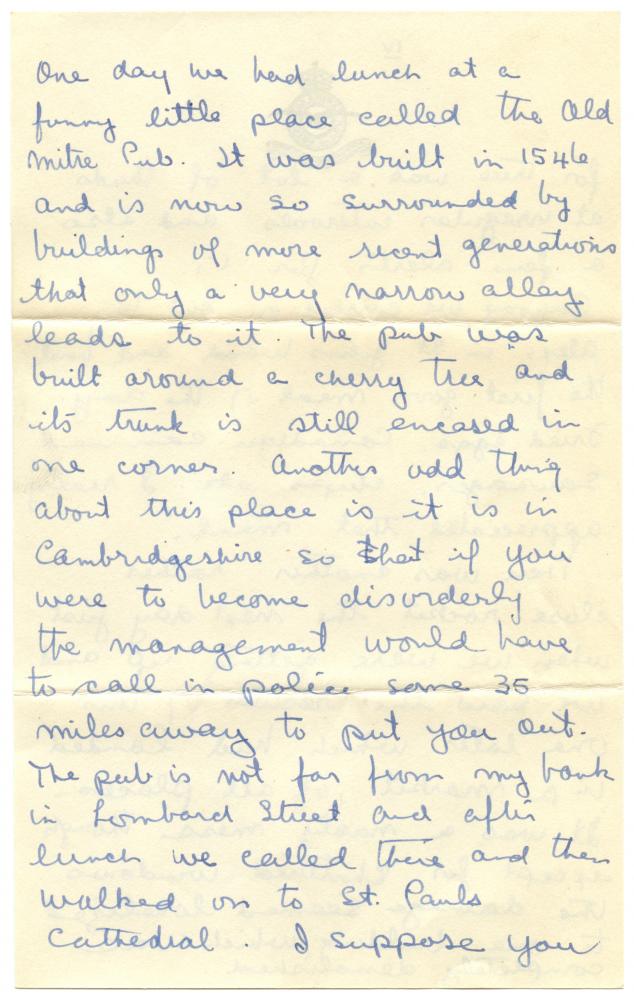 One day we had lunch at a
funny little place called the Old
Mitre Pub. It was built in 1546
and is now so surrounded by
buildings of more recent generations
that only a very narrow alley
leads to it. The pub was
built around a cherry tree and
it's trunk is still encased in
one corner. Another odd thing
about this place is it is in
Cambridgeshire so that if you
were to become disorderly
the management would have
to call in police some 35
miles away to put you out.
The pub is not far from my bank
in Lombard Street and after
lunch we called there and then
walked on to St. Pauls
Cathedral. I suppose you